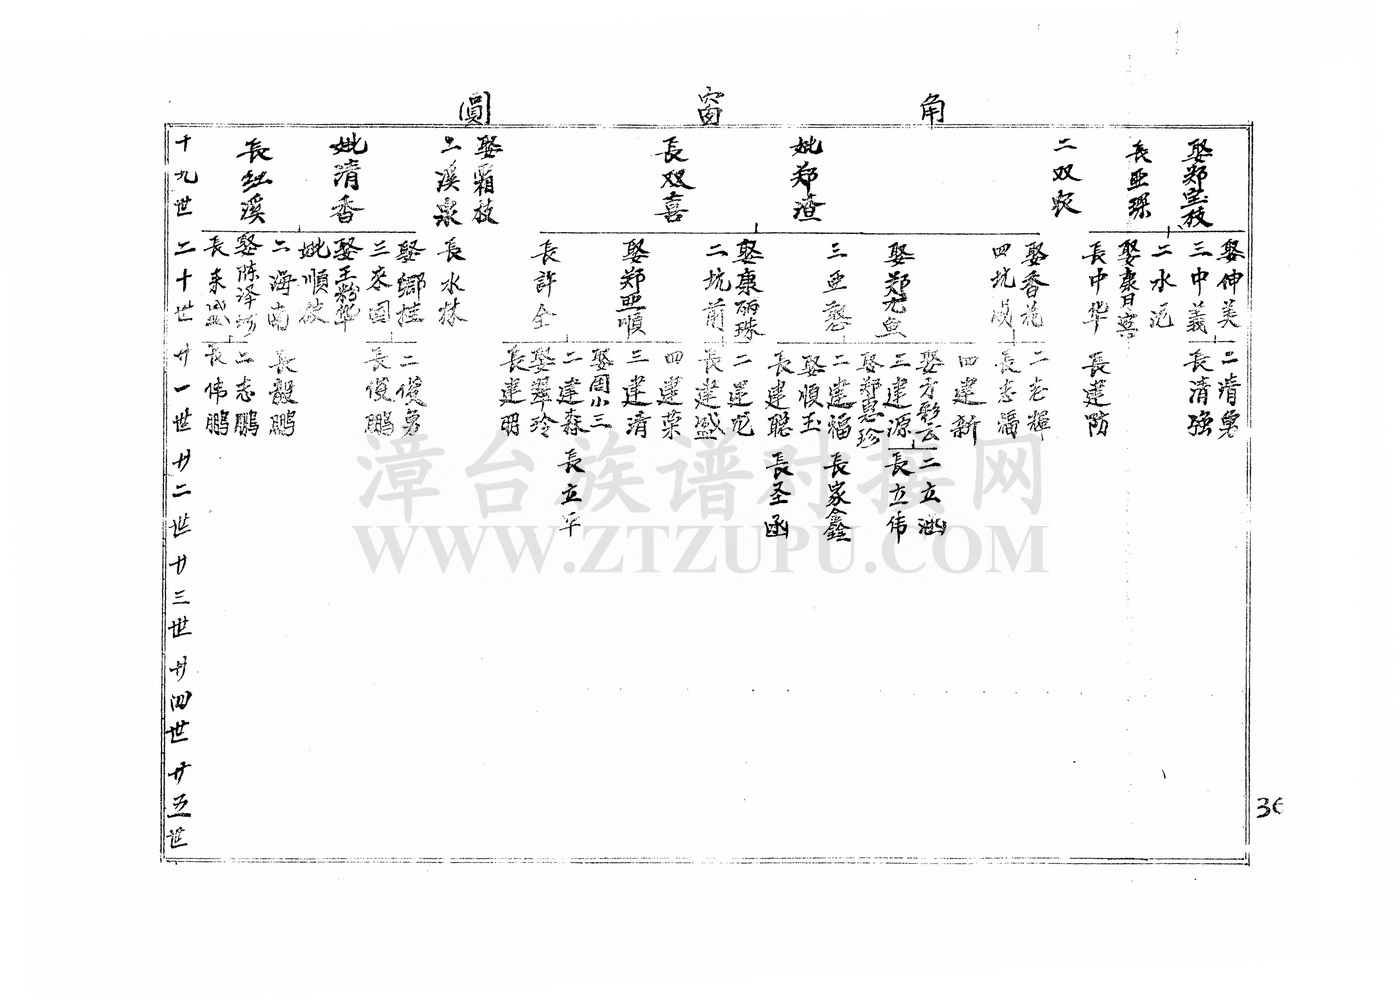 圓 窗 角
十九世
二十世
廿一世
廿二世
廿三世
廿四世
廿五世
長紅溪
妣清香
二溪泉
娶霜枝
長双喜
妣郑渣
二双
長亜琛
娶郑宝枝
長來盛
娶陈泽
二海南
妣順彼
娶王粉华
三來国
娶鄉桂
長水林
長許全
娶郑亜順
二坑前
娶康丽珠
三亜憨
娶郑
四坑成
娶香花
長中华
娶康日
二水沱
三中義
娶伸美
長伟鵬
二志鵬
長毅鵬
長俊鵬
二俊勇
長建明
娶翠玲
二建森
娶周小三
三建清
四建荣
長建盛
二建龙
長建聪
娶順玉
二建福
娶郑惠珍
三建源
娶方彩云
四建新
長志福
二志輝
長建防
長清强
二清勇
長立华
長圣函
長家鑫
長立伟
二立涵
36
漳台族谱对接网
WWW.ZTZUPU.COM